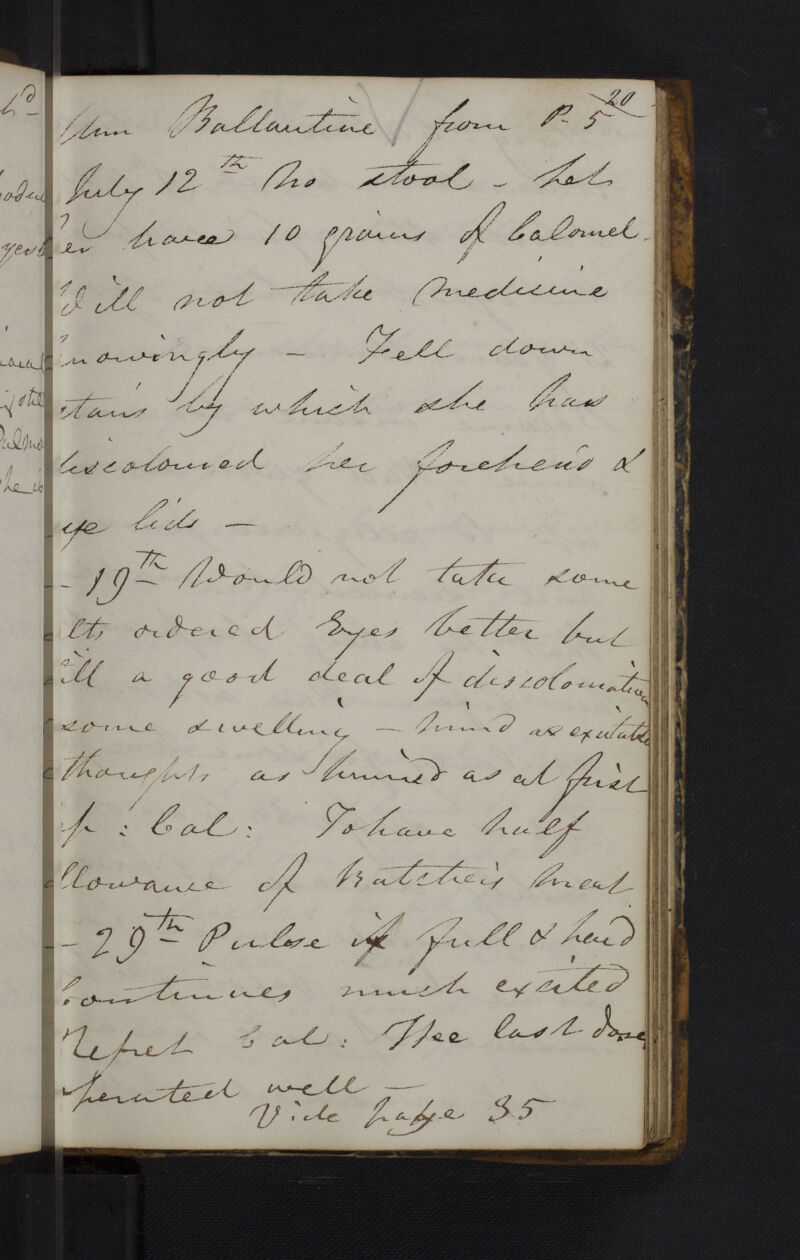 20
Ann Ballantine from P. 5
July 12th No stool - Let
her have 10 grains of Calomel -
Will not take medicine
knowingly - Fell down
stairs by which she has
discoloured her forehead &
eye lids -
- 19th Would not take some
salts ordered Eyes better but
still a good deal of discolouration
some swelling - mind as excitable
thoughts as hurried as at first
Rep : Cal : To have half
allowance of Butcher's meat
- 29th Pulse is full & hard
Continues much excited
Repeat Cal : The last dose
operated well -
Vide page 35